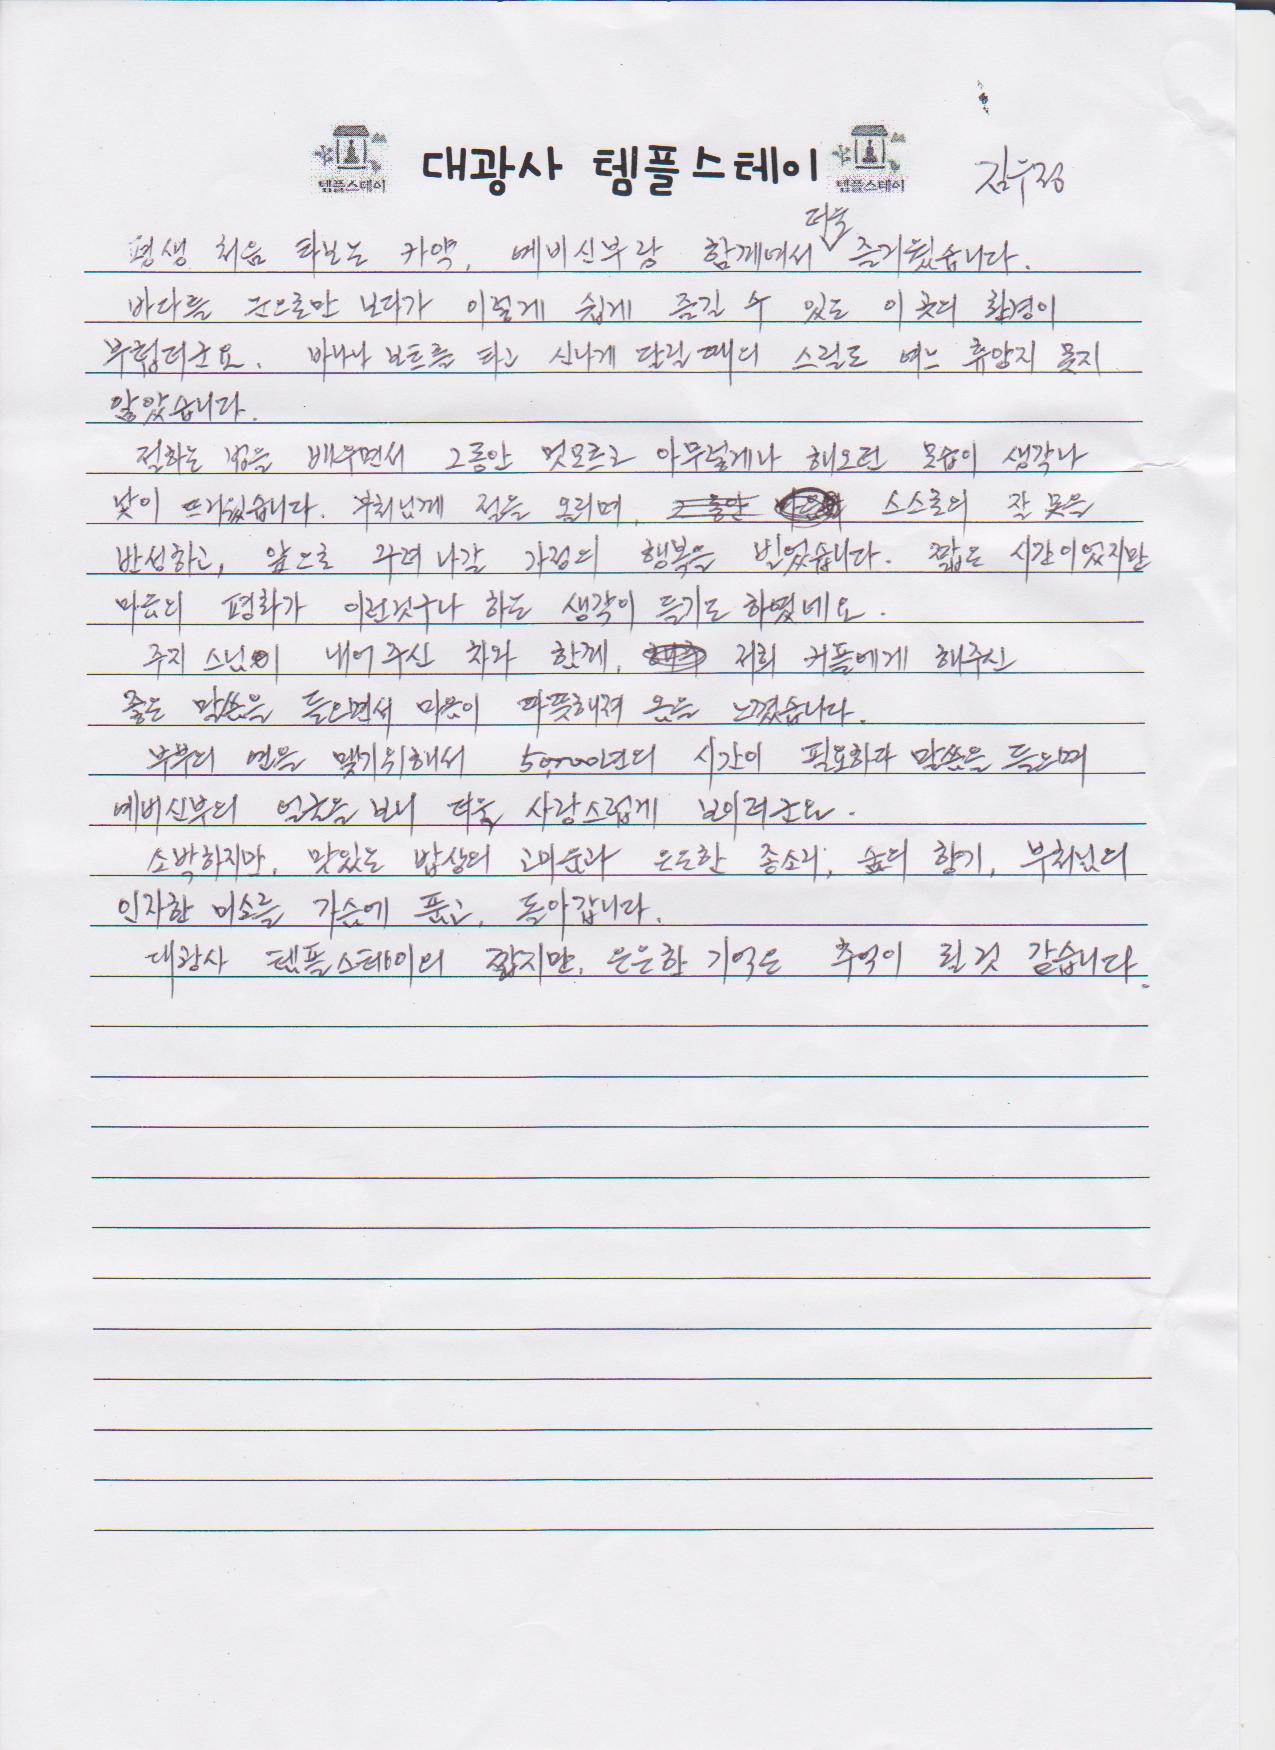 템플스테이 대광사 템플스테이 템플스테이 김우정
더욱
평생 처음 타보는 카약, 예비신부랑 함께여서 즐거웠습니다.
바다를 눈으로만 보다가 이렇게 쉽게 즐길 수 있는 이 곳의 환경이
부럽더군요. 바나나 보트를 타고 신나게 달릴때의 스릴도 여느 휴양지 못지
않았습니다.
절하는 법을 배우면서 그동안 멋모르고 아무렇게나 해오던 모습이 생각나
낯이 뜨거웠습니다. 부처님께 절을 올리며, 그동안 스스로의 잘못을
반성하고, 앞으로 꾸려 나갈 가정의 행복을 빌었습니다. 짧은 시간이었지만
마음의 평화가 이런것구나 하는 생각이 들기도 하였네요.
주지 스님이 내어주신 차와 함께, 저희 커플에게 해주신
좋은 말씀을 들으면서 마음이 따뜻해져 옴을 느꼈습니다.
부부의 연을 맺기위해서 년의 시간이 필요하다 말씀을 들으며
예비신부의 얼굴을 보니 더욱 사랑스럽게 보이더군요.
소박하지만, 맛있는 밥상의 고마움과 은은한 종소리, 숲의 향기, 부처님의
인자한 미소를 가슴에 품고, 돌아갑니다.
대광사 템플스테이의 짧지만, 은은한 기억은 추억이 될것 같습니다.